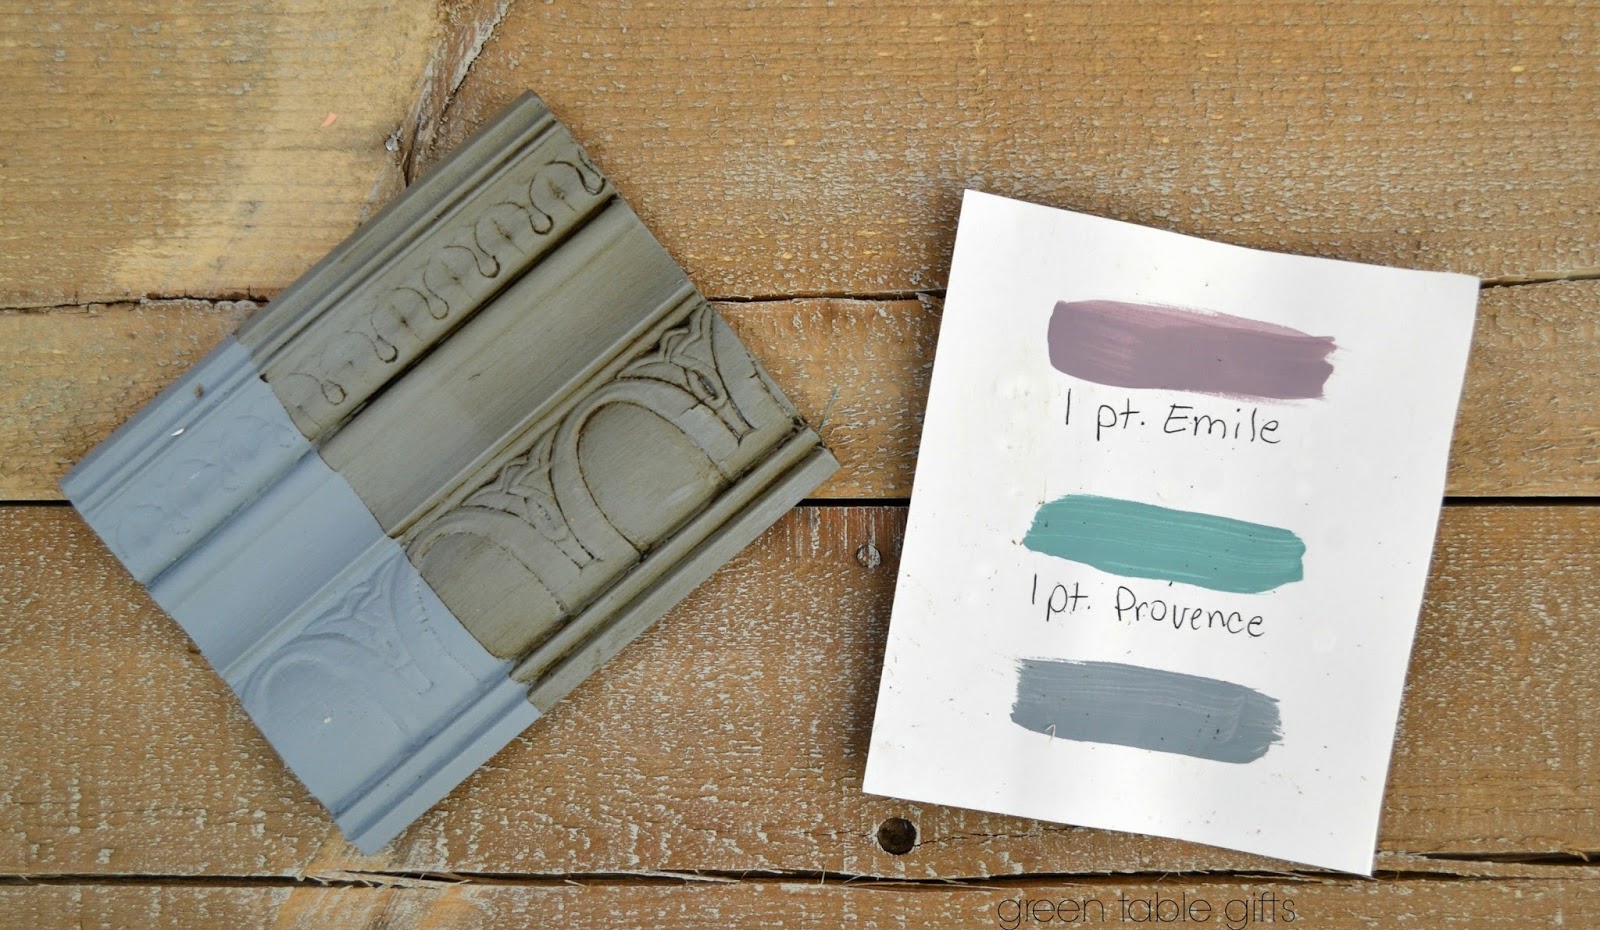 1 pt. Emile
1 pt. Provence
green table gifts